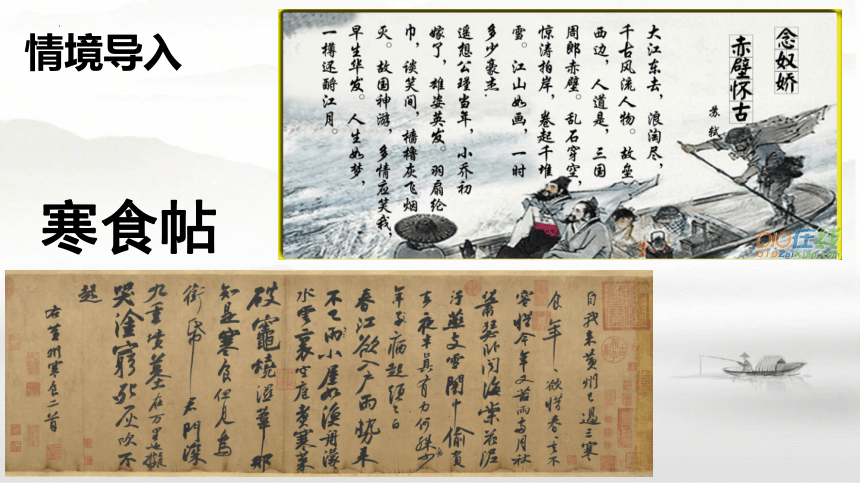 情境导入
寒食帖
念奴娇
赤壁怀古
苏轼
大江东去，浪淘尽，
千古风流人物。故垒
西边，人道是，三国
周郎赤壁。乱石穿空，
惊涛拍岸，卷起千堆
雪。江山如画，一时
多少豪杰.
遥想公瑾当年，小乔初
嫁了，雄姿英发。羽扇纶
巾，谈笑间，樯橹灰飞烟
灭。故国神游，多情应笑我，
早生华发。人生如梦，
一樽还酹江月。
自我來黃州已過三寒
食年〻欲惜春〻去不
容惜今年又苦雨兩月秋
蕭瑟卧聞海棠花泥
汙燕支雪闇中偷負
去夜半真有力何殊少
年子病起頭已白
春江欲入戶雨勢來
不已雨小屋如漁舟濛〻
水雲裏空庖煮寒菜
破竈燒濕葦那
知是寒食但見烏
銜帋君門深
九重墳墓在万里也擬
哭塗窮死灰吹不
起
右黃州寒食二首